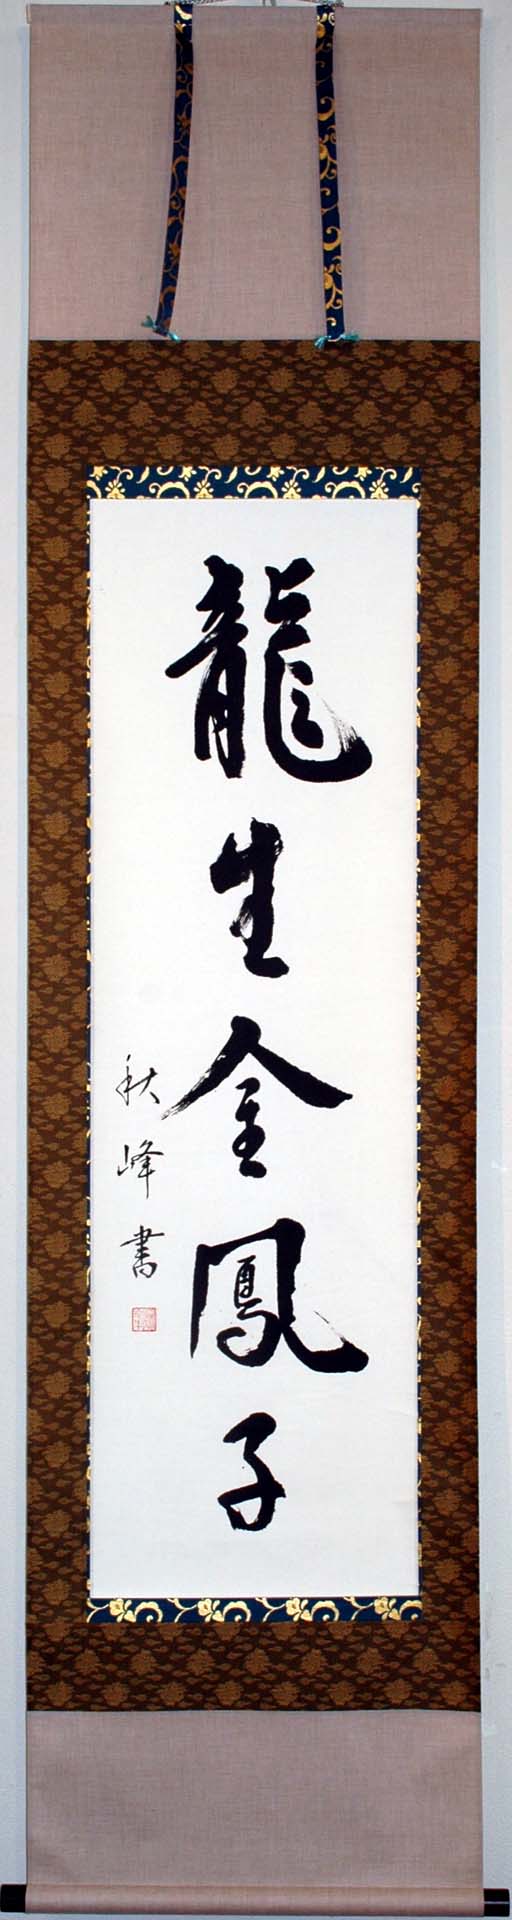 龍生金鳳子
秋峰書